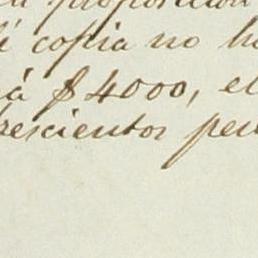 proposicion
copia no
á $4000, el
rescientos